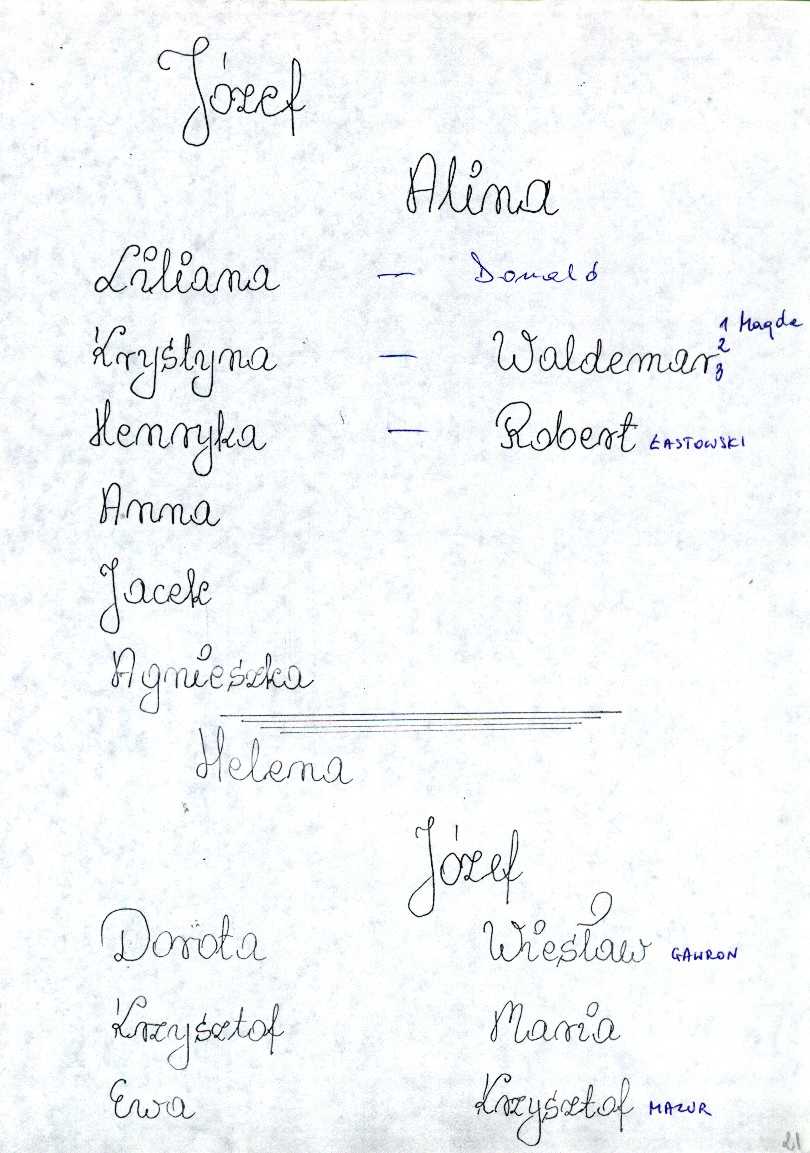 Józef
Alina
Liliana — Donald
Krystyna — Waldemar 1 Magda
2
3
Henryka — Robert ŁASTOWSKI
Anna
Jacek
Agnieszka
Helena
Józef
Dorota Wiesław GAWRON
Krzysztof Maria
Ewa Krzysztof MAZUR
21